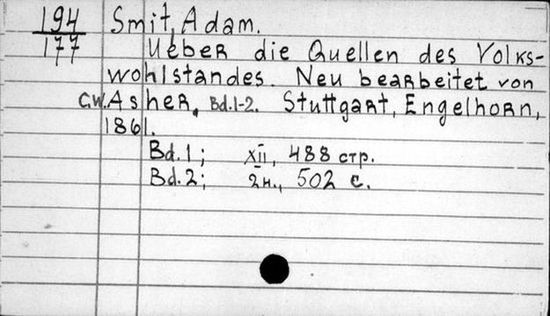 194 Smit, Adam.
177 Ueber die Quellen des Volks-
wohlstandes. Neu bearbeitet von
C.W.Asher. Bd.1-2. Stuttgart, Engelhorn,
1861.
Bd.1; XII, 488 стр.
Bd.2; 2н., 502 с.